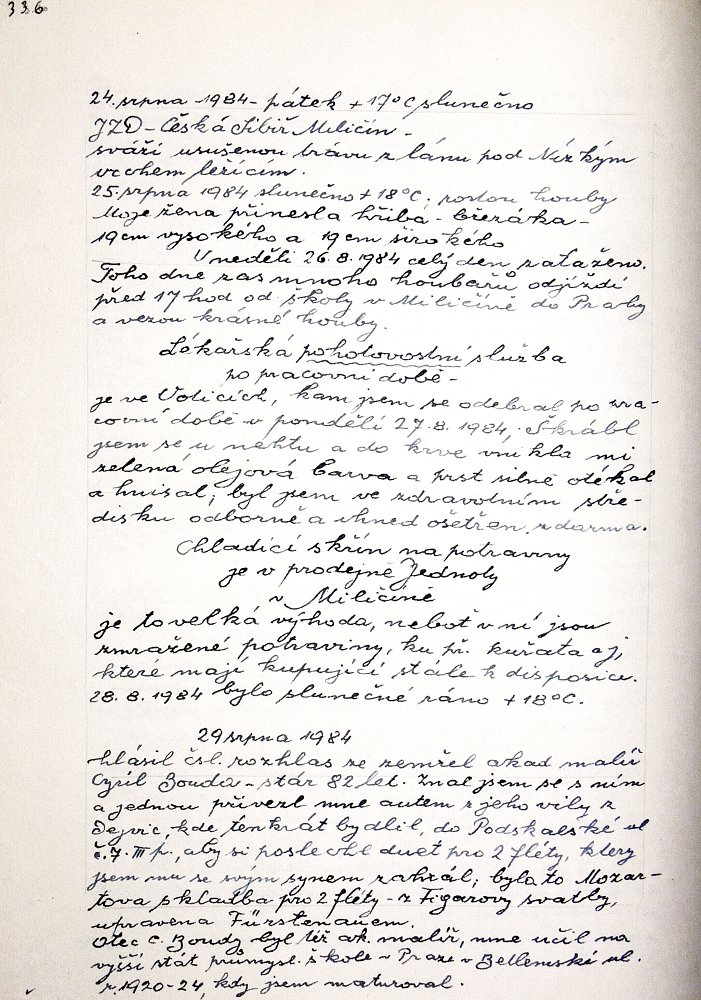 336
24. srpna - 1984 - pátek + 17°C slunečno
JZD - Česká Sibiř Miličín -
sváží usušenou trávu z lánu pod Nízkým
vrchem ležícím.
25. srpna 1984 slunečno + 18°C; rostou houby
Moje žena přinesla hřiba - březáka -
19 cm vysokého a 19 cm širokého
V neděli 26. 8. 1984 celý den zataženo.
Toho dne zas mnoho houbařů odjíždí
před 17 hod od školy v Miličíně do Prahy
a vezou krásné houby.
Lékařská pohotovostní služba
po pracovní době -
je ve Voticích, kam jsem se odebral po pra-
covní době v pondělí 27. 8. 1984. Škrábl
jsem se u nehtu a do krve vnikla mi
zelená olejová barva a prst silně otékal
a hnisal; byl jsem ve zdravotním stře-
disku odborně a ihned ošetřen, zdarma.
Chladící skříň na potraviny
je v prodejně Jednoty
v Miličíně
je to velká výhoda, neboť v ní jsou
zmražené potraviny, ku př. kuřata aj,
které mají kupující stále k disposici.
28. 8. 1984 bylo slunečné ráno + 18°C.
29 srpna 1984
hlásil čsl. rozhlas že zemřel akad malíř
Cyril Bouda - stár 82 let. Znal jsem se s ním
a jednou přivezl mne autem z jeho vily z
Dejvic, kde tenkrát bydlil, do Podskalské ul
č. 7. III p., aby si poslechl duet pro 2 fléty, který
jsem mu se svým synem zahrál; bylo to Mozar-
tova skladba pro 2 fléty - z Figarovy svatby,
upravena Fürstenauem.
Otec C. Boudy byl též ak. malíř, mne učil na
vyšší stát průmysl. škole v Praze v Betlemské ul.
r. 1920-24, kdy jsem maturoval.